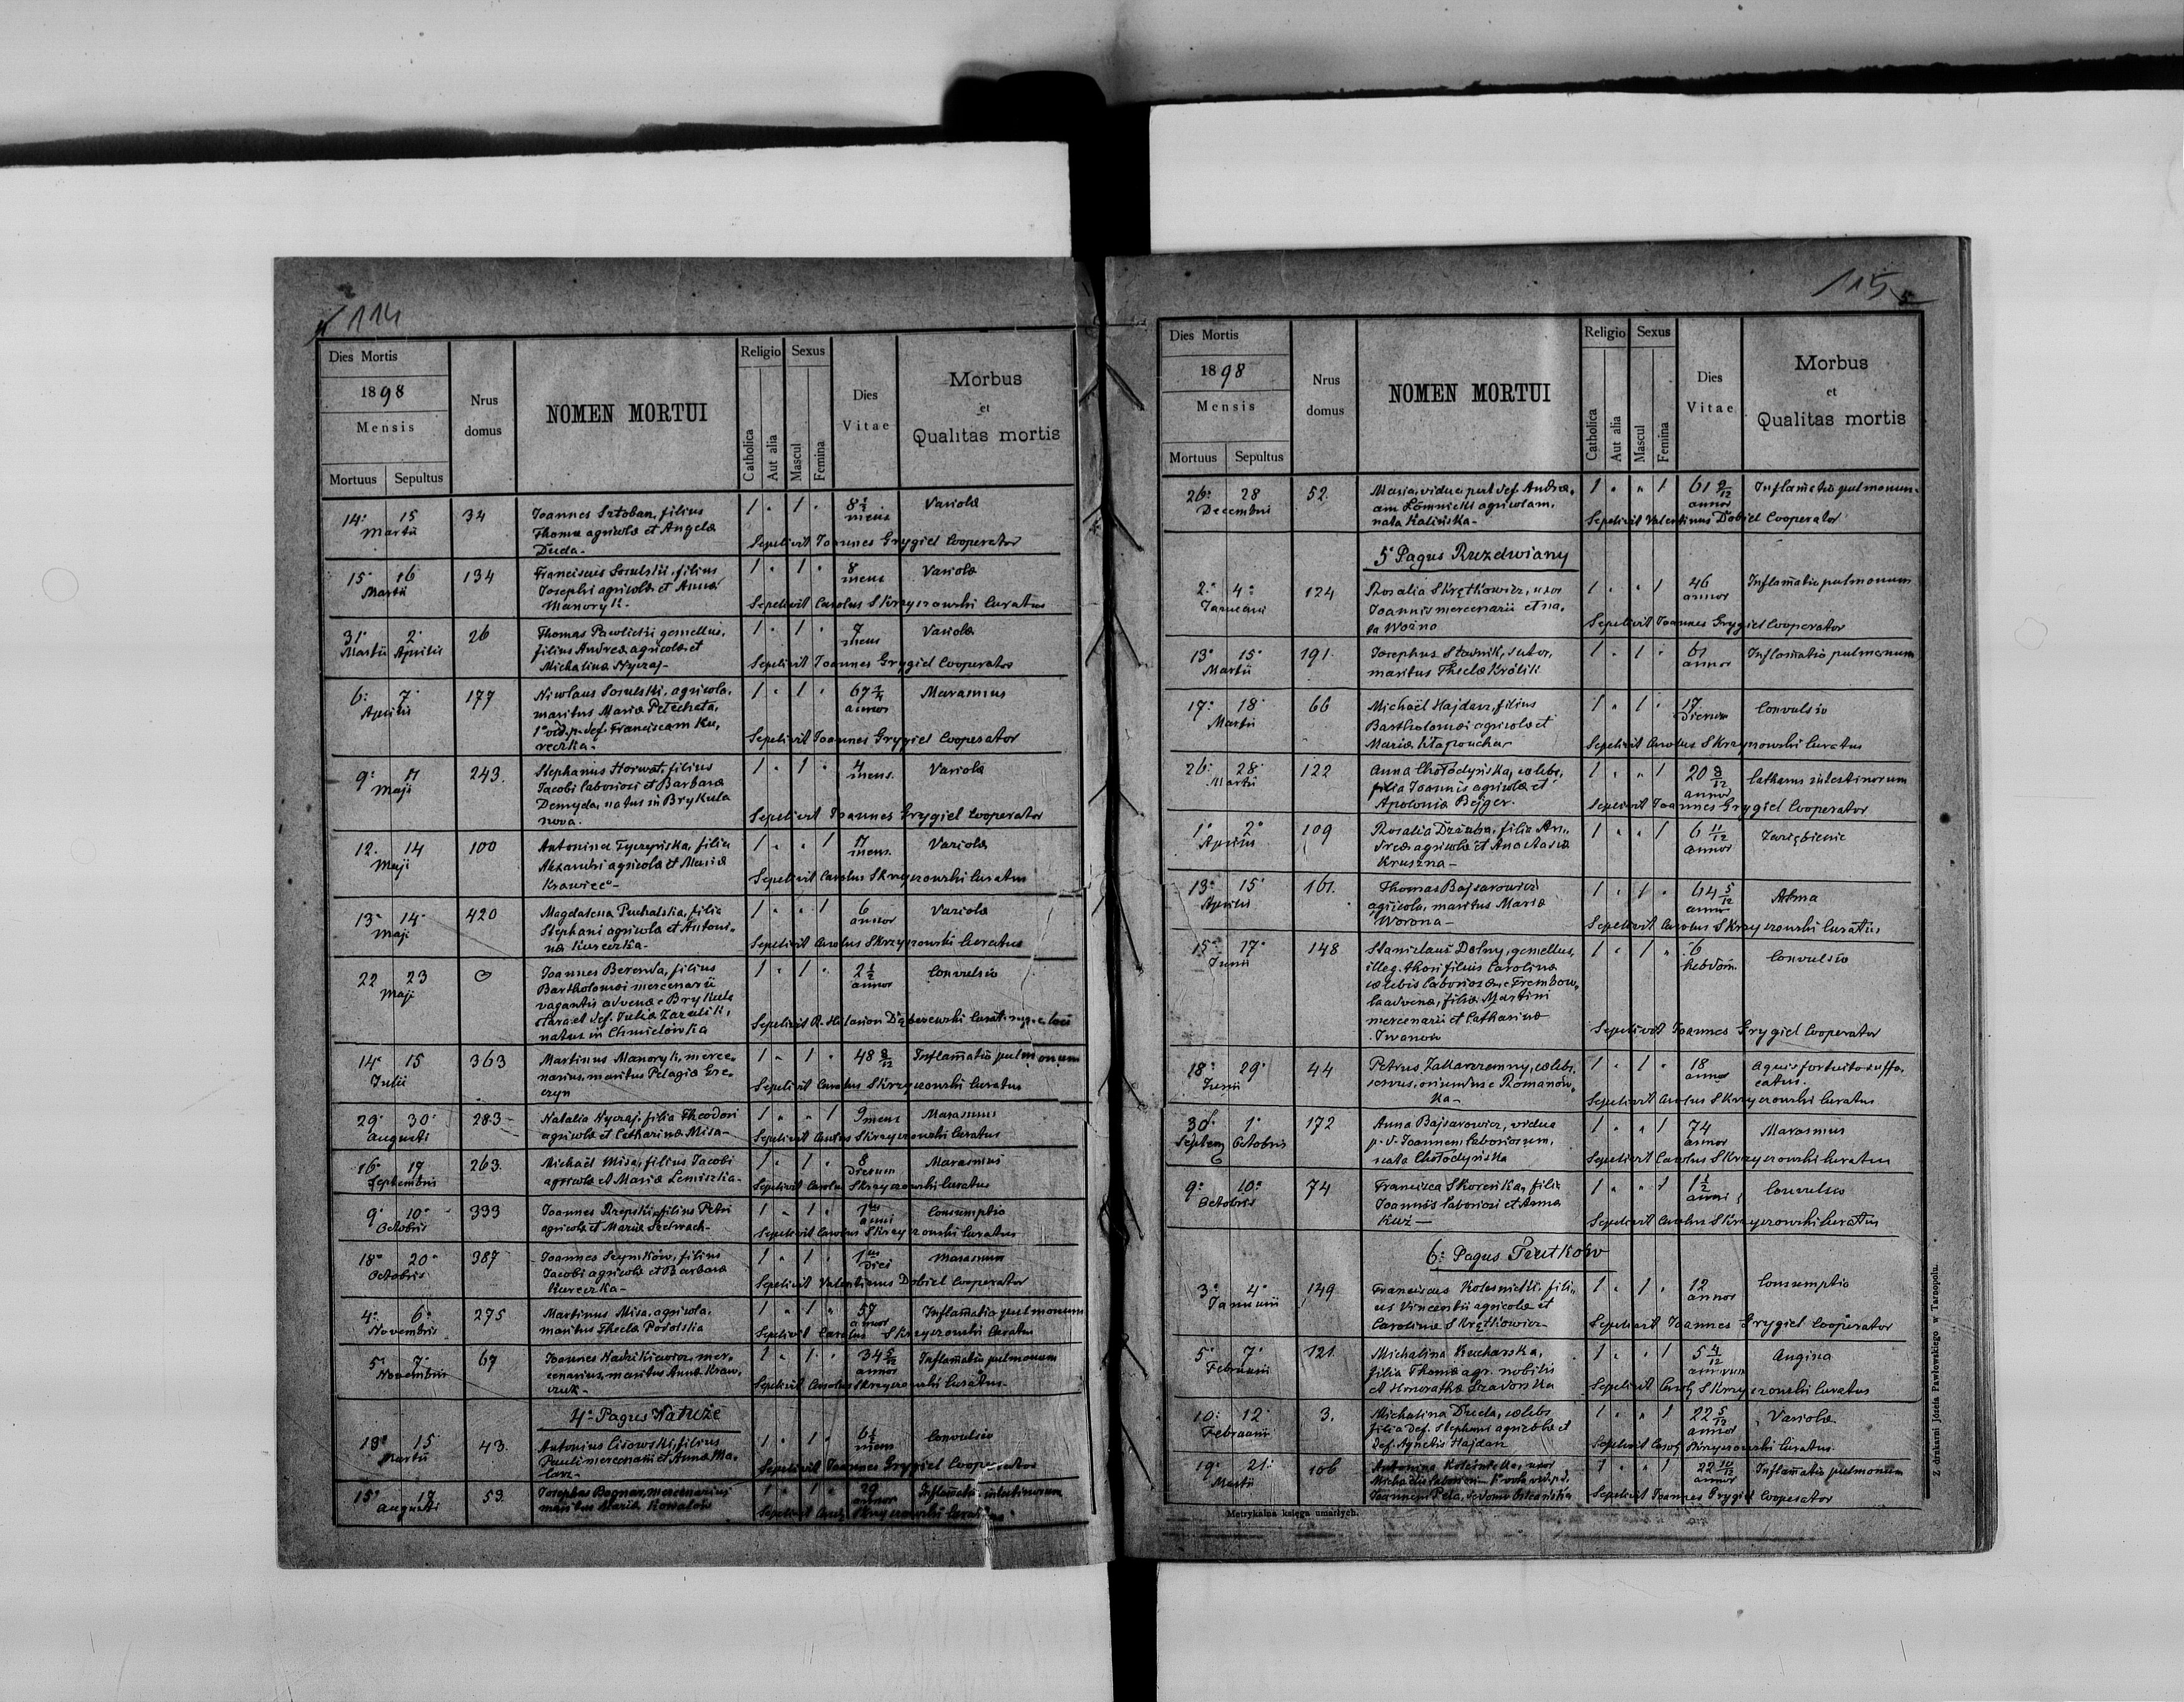 4 114
Dies Mortis
1898
Mensis
Mortuus Sepultus
Nrus domus
NOMEN MORTUI
Religio
Catholica
Aut alia
Sexus
Mascul
Femina
Dies Vitae
Morbus
et
Qualitas mortis
14. 15 34 Joannes Sztoban, filius 1 " 1 " 8 1/2 mens Variola
Martii Thomae agricolae et Angelae
Duda - Sepelivit Joannes Grygiel Cooperator
15 16 134 Franciscus Sosulski, filius 1 " 1 " 8 mens Variola
Martii Josephi agricolae et Annae
Manoryk - Sepelivit Carolus Skrzyczowski Curatus
31 2 26 Thomas Pawlicki gemellus, 1 " 1 " 7 mens Variola
Martii Aprilis filius Andreae agricolae et
Michalinae Nyczaj - Sepelivit Joannes Grygiel Cooperator
6. 7 177 Nicolaus Sosulski, agricola, 1 " 1 " annor Marasmus
Aprilis maritus Mariae Petechata,
def. Franciscam Ku,
reczka - Sepelivit Joannes Grygiel Cooperator
9. 11 243. Stephanus Horwat, filius 1 " 1 " 4 mens. Variola
Maji Jacobi laboriosi et Barbarae
Demyda, natus in Brykula
nova. Sepelivit Joannes Grygiel Cooperator
12. 14 100 Antonina Tyczyńska, filia 1 " " 1 11 mens. Variola
Maji Alexandri agricolae et Mariae
Krawiec - Sepelivit Carolus Skrzyczowski Curatus
13 14 420 Magdalena Puchalska, filia 1 " " 1 6 annor Variola
Maji Stephani agricolae et Antoni„
nae Kureczka - Sepelivit Carolus Skrzyczowski Curatus
22 23 0 Joannes Berenda, filius 1 " 1 " 2 1/2 annor Convulsio
Maji Bartholomaei mercenarii
vagantis advenae e Brykula
stara et def. Julia Zarulik,
natus in Chmielówka Sepelivit R. Hilarion
14 15 363 Martinus Manoryk, merce„ 1 " 1 " 48 8/12 Inflam̄atio pulmonum
Julii narius, maritus Pelagiae Gre„
czyn Sepelivit Carolus Skrzyczowski Curatus
29 30 283 Natalia Nyczaj, filia Theodori 1 " " 1 9 mens Marasmus
Augusti agricolae et Catharinae Misa - Sepelivit Carolus Skrzyczowski Curatus
16 17 263. Michaël Misa, filius Jacobi 1 " 1 " 8 Dierum Marasmus
Septembris agricolae et Mariae Lemiszka - Sepelivit Carolus Skrzyczowski Curatus
9 10 333 Joannes Rzepski, filius Petri 1 " 1 " 1 anni Consumptio
Octobris agricolae et Mariae Szelwach - Sepelivit Carolus Skrzyczowski Curatus
18 20 387 Joannes Szymków, filius 1 " 1 " 1 Diei Marasmum
Octobris Jacobi agricolae et Barbarae
Kureczka - Sepelivit Valentinus Dobiel Cooperator
4. 6 275 Martinus Misa, agricola, 1 " 1 " 57 annor Inflam̄atio pulmonum
Novembris maritus Theclae Podolska Sepelivit Carolus Skrzyczowski Curatus
5 7 67 Joannes mer„ 1 " 1 " 34 5/12 annor Inflam̄atio pulmonum
Novembris cenarius, maritus Annae Kraw„
czuk - Sepelivit Carolus Skrzyczowski Curatus
4. Pagus Natuże
13 15 43. Antonius Lisowski, filius 1 " 1 " 6 1/2 mens Convulsio
Martii Pauli mercenarii et Annae Ma„
larz - Sepelivit Joannes Grygiel Cooperator
15 17 53. Josephus Bognar, mercenarius 1 " 1 " 29 annor Inflam̄atio intestinorum
Augusti maritus Mariae Kowalów Sepelivit Skrzyczowski Curatus
115 5
Dies Mortis
1898
Mensis
Mortuus Sepultus
Nrus domus
NOMEN MORTUI
Religio
Catholica
Aut alia
Sexus
Mascul
Femina
Dies Vitae
Morbus
et
Qualitas mortis
26. 28 52. Maria, vidua post def. Andre„ 1 " " 1 61 9/12 annor Inflam̄atio pulmonum
Decembris am Łomnicki agricolam,
nata Kalińska - Sepelivit Valentinus Dobiel Cooperator
5 Pagus Ruzdwiany
2. 4. 124 Rosalia Skrętkowicz, uxor 1 " " 1 46 annor Inflam̄atio pulmonum
Januarii Joannis mercenarii et na„
ta Woźna Sepelivit Joannes Grygiel Cooperator
13 15 191. Josephus Stavnik, sutor, 1 " 1 " 61 annor Inflam̄atio pulmonum
Martii maritus Theclae Królik
17. 18 66 Michaël Hajdasz, filius 1 " 1 " 17 Dierum Convulsio
Martii Bartholomaei agricolae et
Mariae Sepelivit Carolus Skrzyczowski Curatus
26. 28 122 Anna Chołodyńska, coelebs, 1 " " 1 20 8/12 annor Catharus intestinorum
Martii filia Joannis agricolae et
Apoloniae Bejger. Sepelivit Joannes Grygiel Cooperator
1 2 109 Rosalia Dziuba, filia An„ 1 " " 1 6 11/12 annor Zaziębienie
Aprilis dreae agricolae et Anastasiae
Kruszna -
13 15 161. Thomas Bajsarowicz 1 " 1 " 64 5/12 annor Astma
Aprilis agricola, maritus Mariae
Worona - Sepelivit Carolus Skrzyczowski Curatus
15 17 148 Stanislaus Dolny, gemellus, 1 " 1 " 6 hebdom. Convulsio
Junii illeg. thori filius Carolinae
coelebis laboriosae, e Trembow„
la advenae, filiae Martini
mercenarii et Catharinae
Iwanow Sepelivit Joannes Grygiel Cooperator
18 29 44 Petrus Zakorzemny, coelebs, 1 " 1 " 18 annor Aquis fortuito suffo„
Junii servus, oriundus e Romanów„ catus.
ka - Sepelivit Carolus Skrzyczowski Curatus
30 1 172 Anna Bajsarowicz, vidua 1 " " 1 74 annor Marasmus
Septem Octobris p. d. Joannem laboriosum,
nata Chołodyńska Sepelivit Carolus Skrzyczowski Curatus
9. 10. 74 Francisca Skoreńka, filia 1 " " 1 1 1/2 anni Convulsio
Octobris Joannis laboriosi et Annae
Kuź - Sepelivit Carolus Skrzyczowski Curatus
6. Pagus Trutków
3. 4. 149 Franciscus Kolesnicki, fili„ 1 " 1 " 12 annor Consumptio
Januarii us Vincentii agricolae et
Carolinae Skrętkowicz - Sepelivit Joannes Grygiel Cooperator
5 7. 121. Michalina Kucharska, 1 " " 1 5 4/12 annorum Angina
Februarii filia Thomae agr. nobilis
et Honorathae Szadorska Sepelivit Carol Skrzyczowski Curatus
10. 12 3. Michalina Duda, coelebs 1 " " 1 22 5/12 annor Variola
Februarii filia def. Stephani agricolae et
def. Agnetis Hajdasz Sepelivit Carol Skrzyczowski Curatus
19. 21. 106 Antonina uxor 1 " " 1 22 10/12 annor Inflam̄atio pulmonum
Martii Michaëlis
Joannem Sepelivit Joannes Grygiel Cooperator
Metrykalna księga umarłych.
Z drukarni Józefa Pawłowskiego w Tarnopolu.